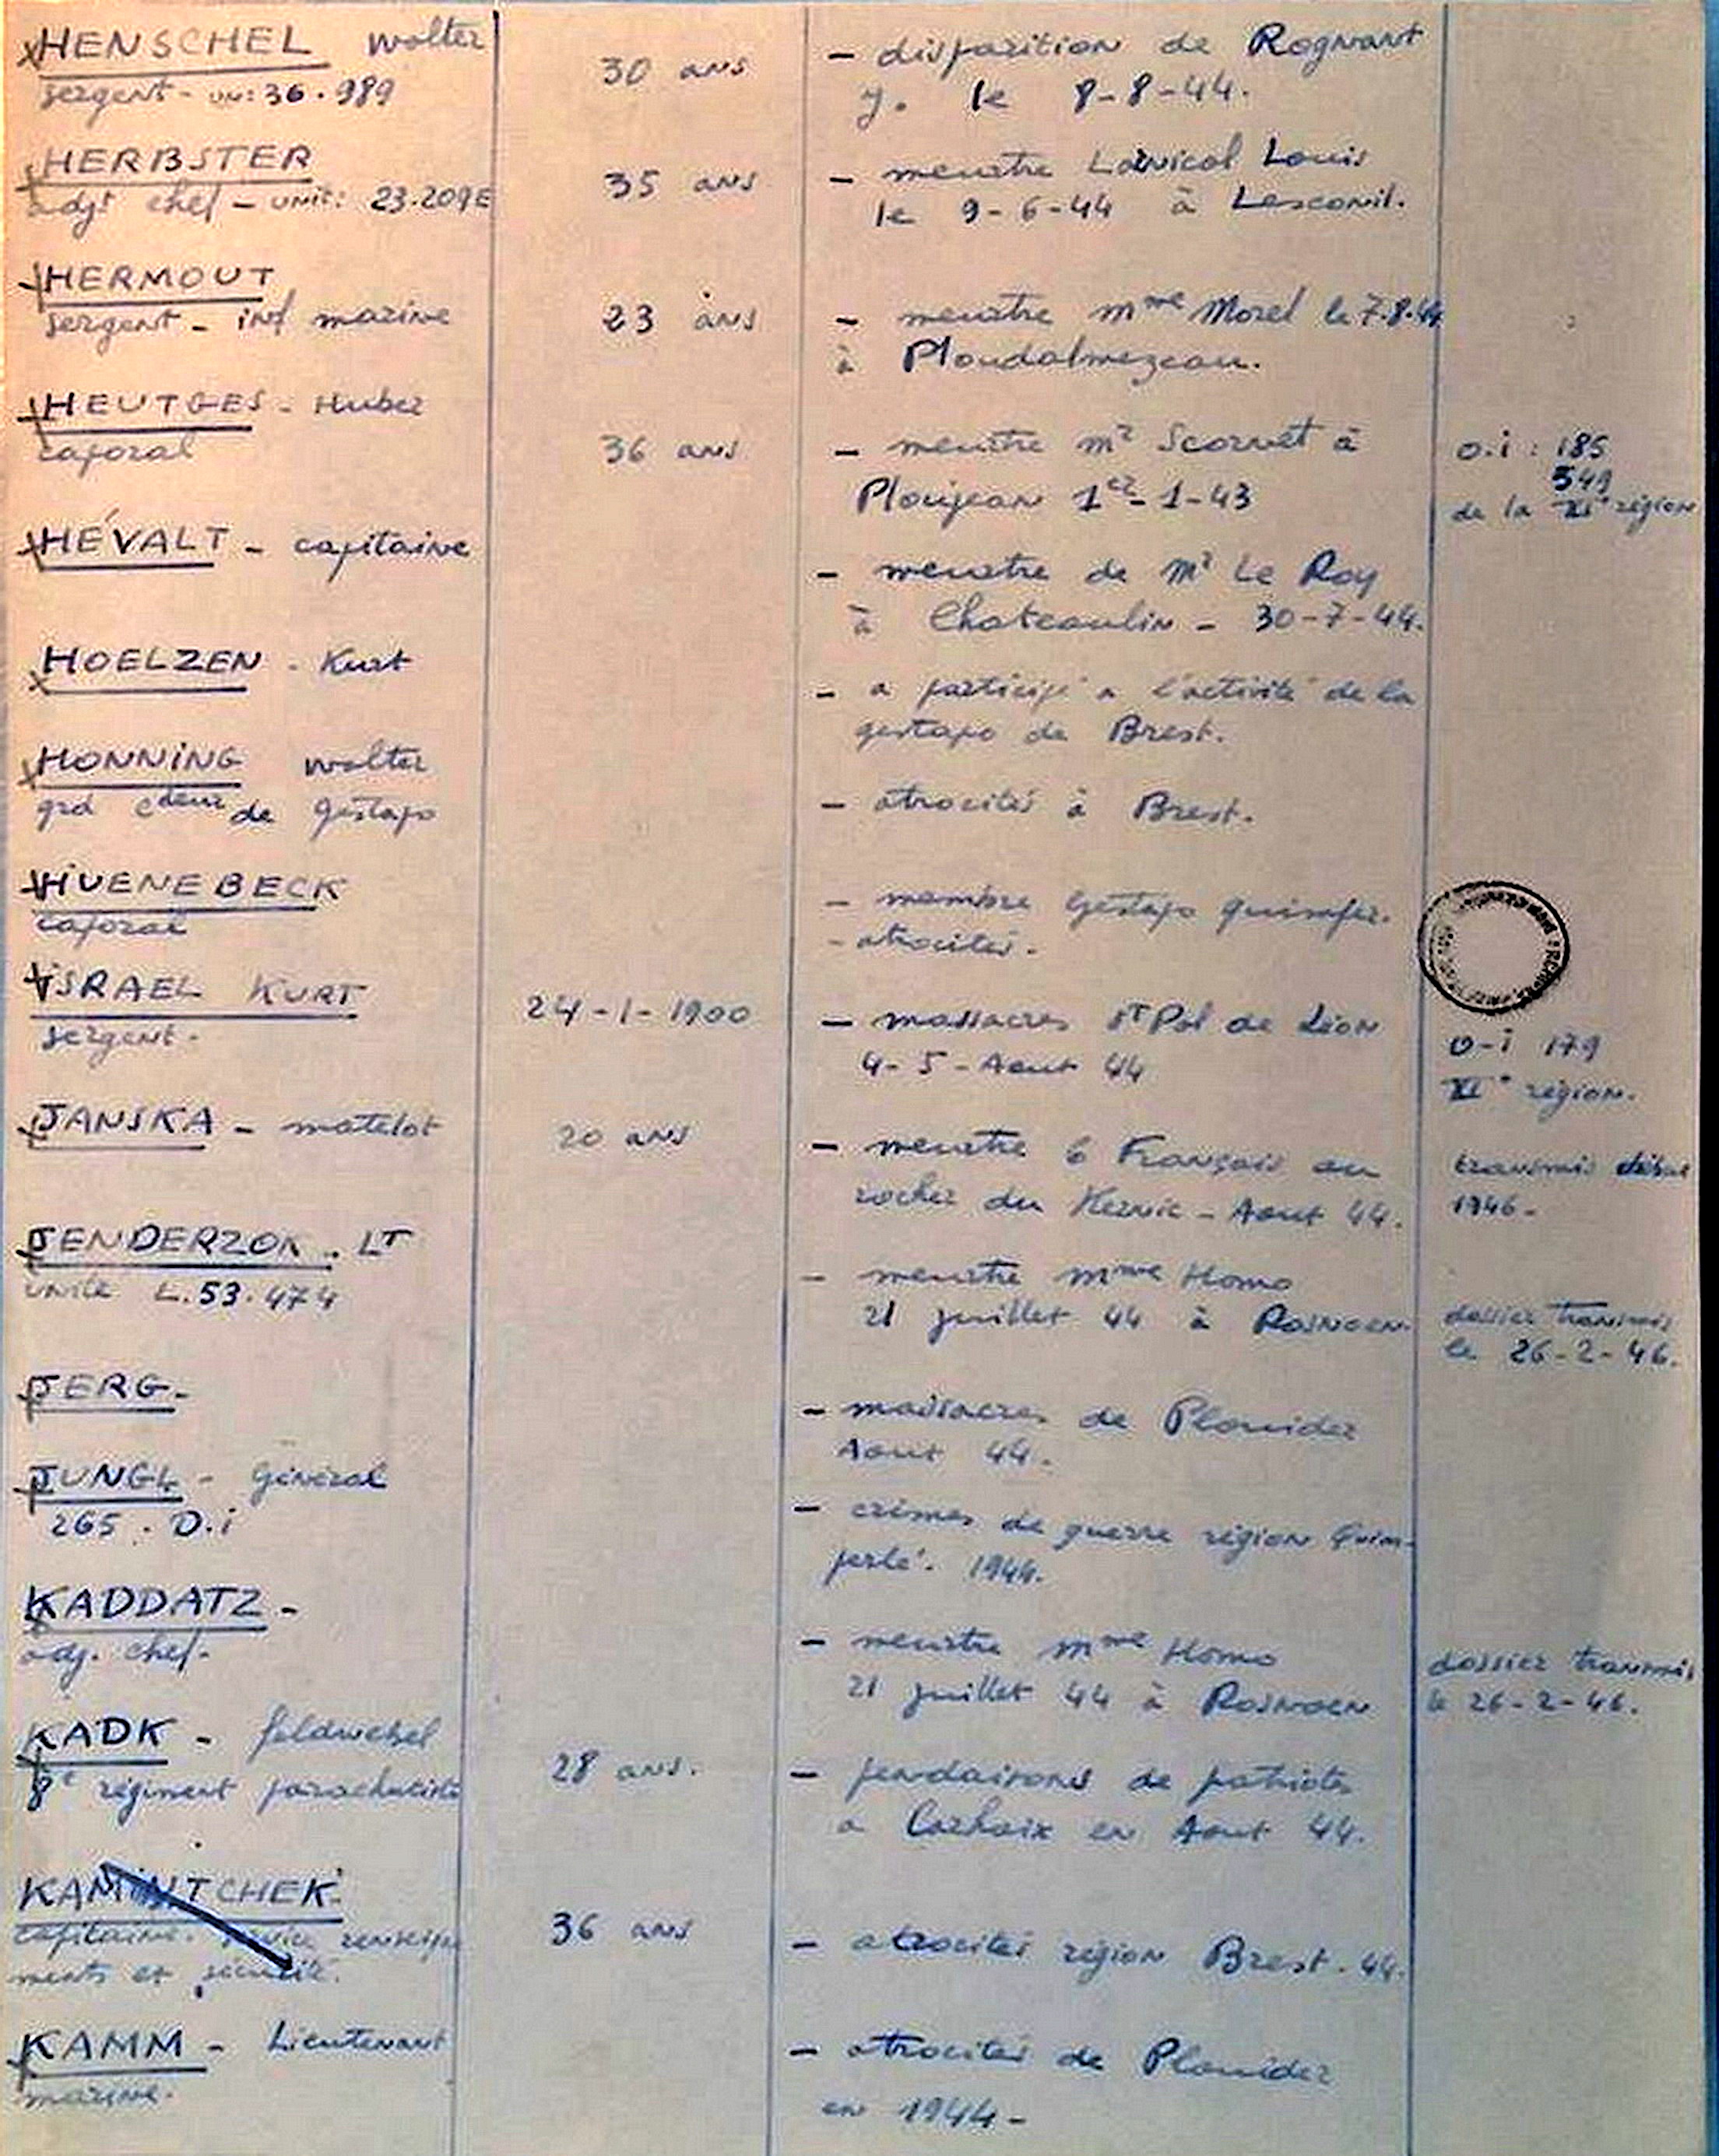 HENSCHEL Walter
sergent - un: 36.989
30 ans
- disparition de Rognant
y. le 8-8-44.
HERBSTER
adjt chef - unit: 23.209E
35 ans
- meurtre Larnicol Louis
le 9-6-44 à Lesconil.
HERMOUT
sergent - inf marine
23 ans
- meurtre mme Morel le 7.8.44
à Ploudalmezeau.
HEUTGES - Huber
caporal
36 ans
- meurtre mr Scornet à
Ploujean 1er-1-43
o.i : 185
549
de la XIe région
HÉVALT - capitaine
- meurtre de Mr Le Roy
à Chateaulin - 30-7-44.
HOELZEN - Kurt
- a participé a l'activité de la
gestapo de Brest.
HONNING Walter
grd cdeur de Gestapo
- atrocités à Brest.
HUENEBECK
caporal
- membre Gestapo Quimper.
- atrocités.
ISRAEL KURT
sergent.
24-1-1900
- massacres St Pol de Léon
4-5-Aout 44
o-i 179
XIe région.
JANSKA - matelot
20 ans
- meurtre 6 Français au
rocher du Kernic - Aout 44.
transmis début
1946-
JENDERZOK. LT
unité L.53.474
- meurtre mme Homo
21 juillet 44 à ROSNOEN
dossier transmis
le 26-2-46.
JERG-
- massacres de Plouider
Aout 44.
JUNGL - Général
265. D.i
- crimes de guerre région Quim-
perlé. 1944.
KADDATZ -
adj. chef-
- meurtre mme Homo
21 juillet 44 à ROSNOEN
dossier transmis
le 26-2-46.
KADK - feldwebel
8e régiment parachutiste
28 ans.
- pendaisons de patriotes
a Carhaix en Aout 44.
KAMINTCHEK
capitaine. service renseigne
ments et sécurité.
36 ans
- atrocités région Brest. 44.
KAMM - Lieutenant
marine.
- atrocités de Plouider
en 1944-